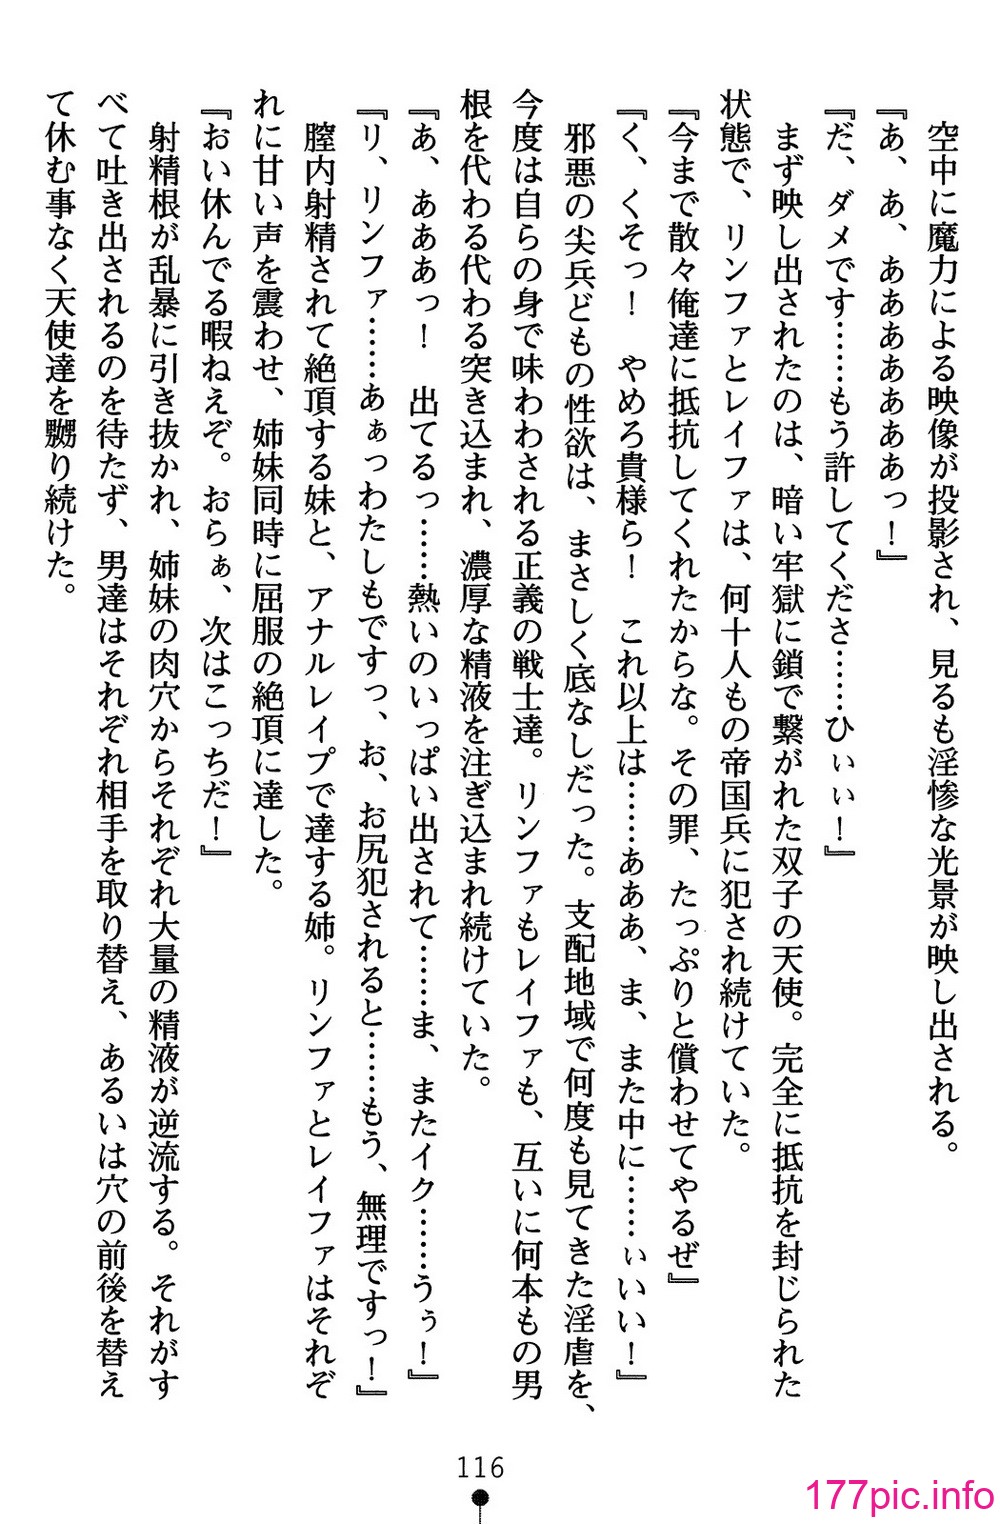 空中に魔力による映像が投影され、見るも淫惨な光景が映し出される。
『あ、あ、ああああああっ！』
『だ、ダメです……もう許してくださ……ひぃぃ！』
まず映し出されたのは、暗い牢獄に鎖で繋がれた双子の天使。完全に抵抗を封じられた
状態で、リンファとレイファは、何十人もの帝国兵に犯され続けていた。
『今まで散々俺達に抵抗してくれたからな。その罪、たっぷりと償わせてやるぜ』
『く、くそっ！　やめろ貴様ら！　これ以上は……あああ、ま、また中に……ぃいい！』
邪悪の尖兵どもの性欲は、まさしく底なしだった。支配地域で何度も見てきた淫虐を、
今度は自らの身で味わわされる正義の戦士達。リンファもレイファも、互いに何本もの男
根を代わる代わる突き込まれ、濃厚な精液を注ぎ込まれ続けていた。
『あ、あああっ！　出てるっ……熱いのいっぱい出されて……ま、またイク……うぅ！』
『リ、リンファ……あぁっわたしもですっ、お、お尻犯されると……もう、無理ですっ！』
膣内射精されて絶頂する妹と、アナルレイプで達する姉。リンファとレイファはそれぞ
れに甘い声を震わせ、姉妹同時に屈服の絶頂に達した。
『おい休んでる暇ねえぞ。おらぁ、次はこっちだ！』
射精根が乱暴に引き抜かれ、姉妹の肉穴からそれぞれ大量の精液が逆流する。それがす
べて吐き出されるのを待たず、男達はそれぞれ相手を取り替え、あるいは穴の前後を替え
て休む事なく天使達を嬲り続けた。
116
177pic.info